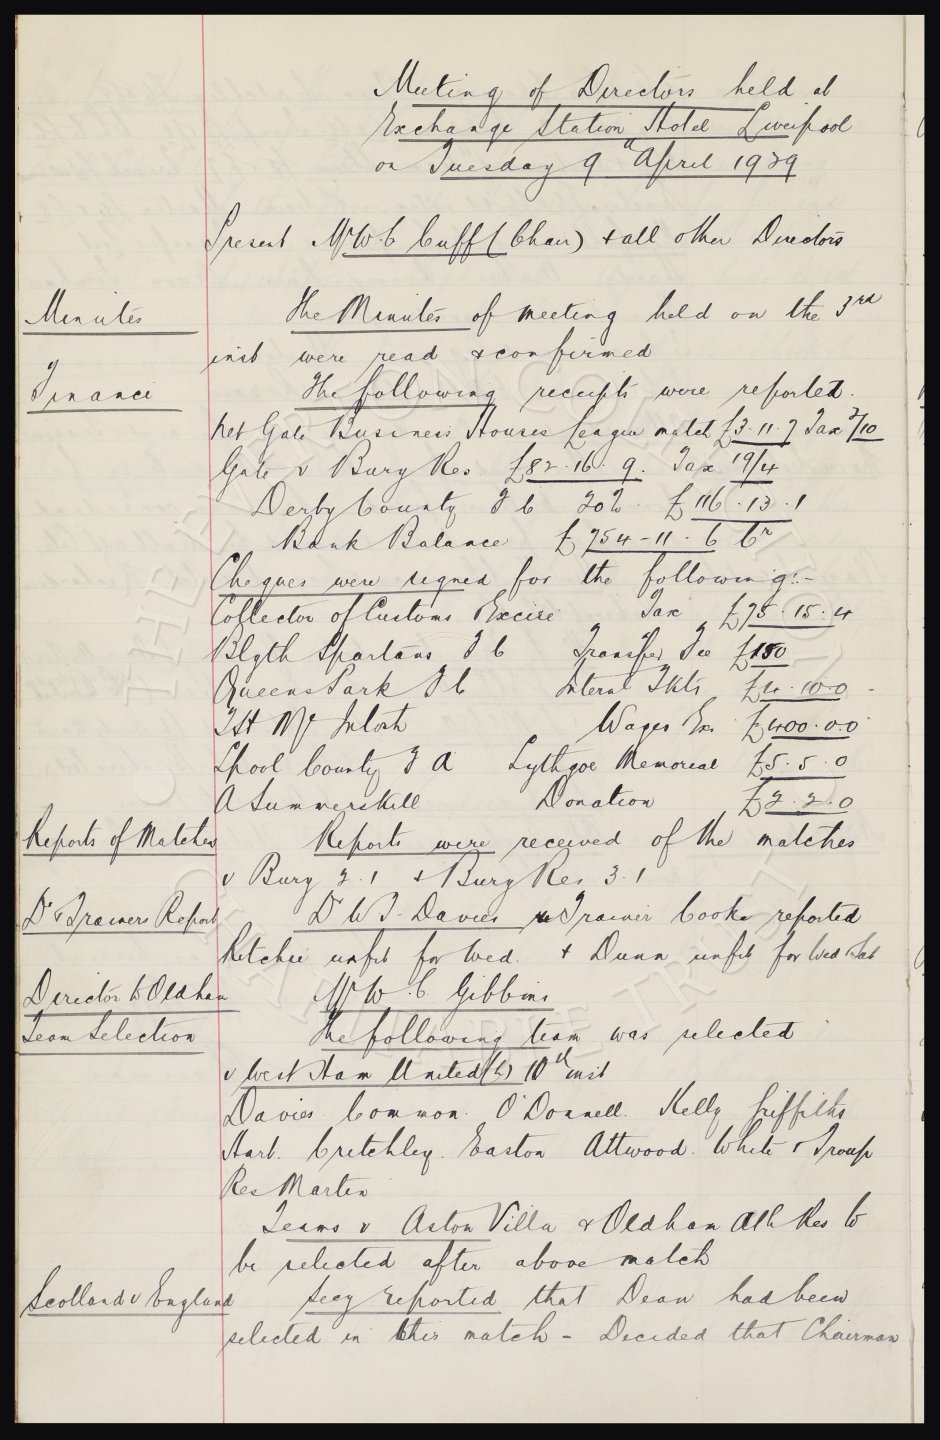 Meeting of Directors held at
Exchange Station Hotel Liverpool
on Tuesday 9" April 1929
Present Mr W.C Cuff (Chair) + all other Directors
Minutes
The Minutes of meeting held on the 3rd
inst were read & confirmed
Finance
The following receipts were reported.
Net Gate Business Houses League match £3.11.7 Tax 2/10
Gate v Bury Res £82.16.9. Tax 19/4
Derby County F C 20% £116.13.1
Bank Balance £754-11.6 Cr
Cheques were signed for the following:-
Collector of Customs Excise Tax £75.15.4
Blyth Spartans F C Transfer Fee £150
Queens Park F C Internl Tkts £4.10.0-
T H McIntosh Wages Exs £400.0.0
L'pool County F A Lythgoe Memorial £5.5.0
A Summerskill Donation £2.2.0
Reports of Matches
Reports were received of the matches
v Bury 2.1 & Bury Res 3.1
Dr & Trainers Report
Dr W T. Davies Trainer Cooke reported
Ritchie unfit for Wed. + Dunn unfit for Wed & Sat
Director to Oldham
Mr W.C. Gibbins
Team Selection
The following team was selected
v West Ham United (h) 10th inst
Davies. Common. O'Donnell. Kelly Griffiths
Hart. Critchley. Easton Attwood. White & Troup
Res Martin
Teams v Aston Villa & Oldham Ath Res to
be selected after above match
Scotland v England
Secy reported that Dean had been
selected in this match - Decided that Chairman
THE EVERTON COLLECTION
CHARITABLE TRUST